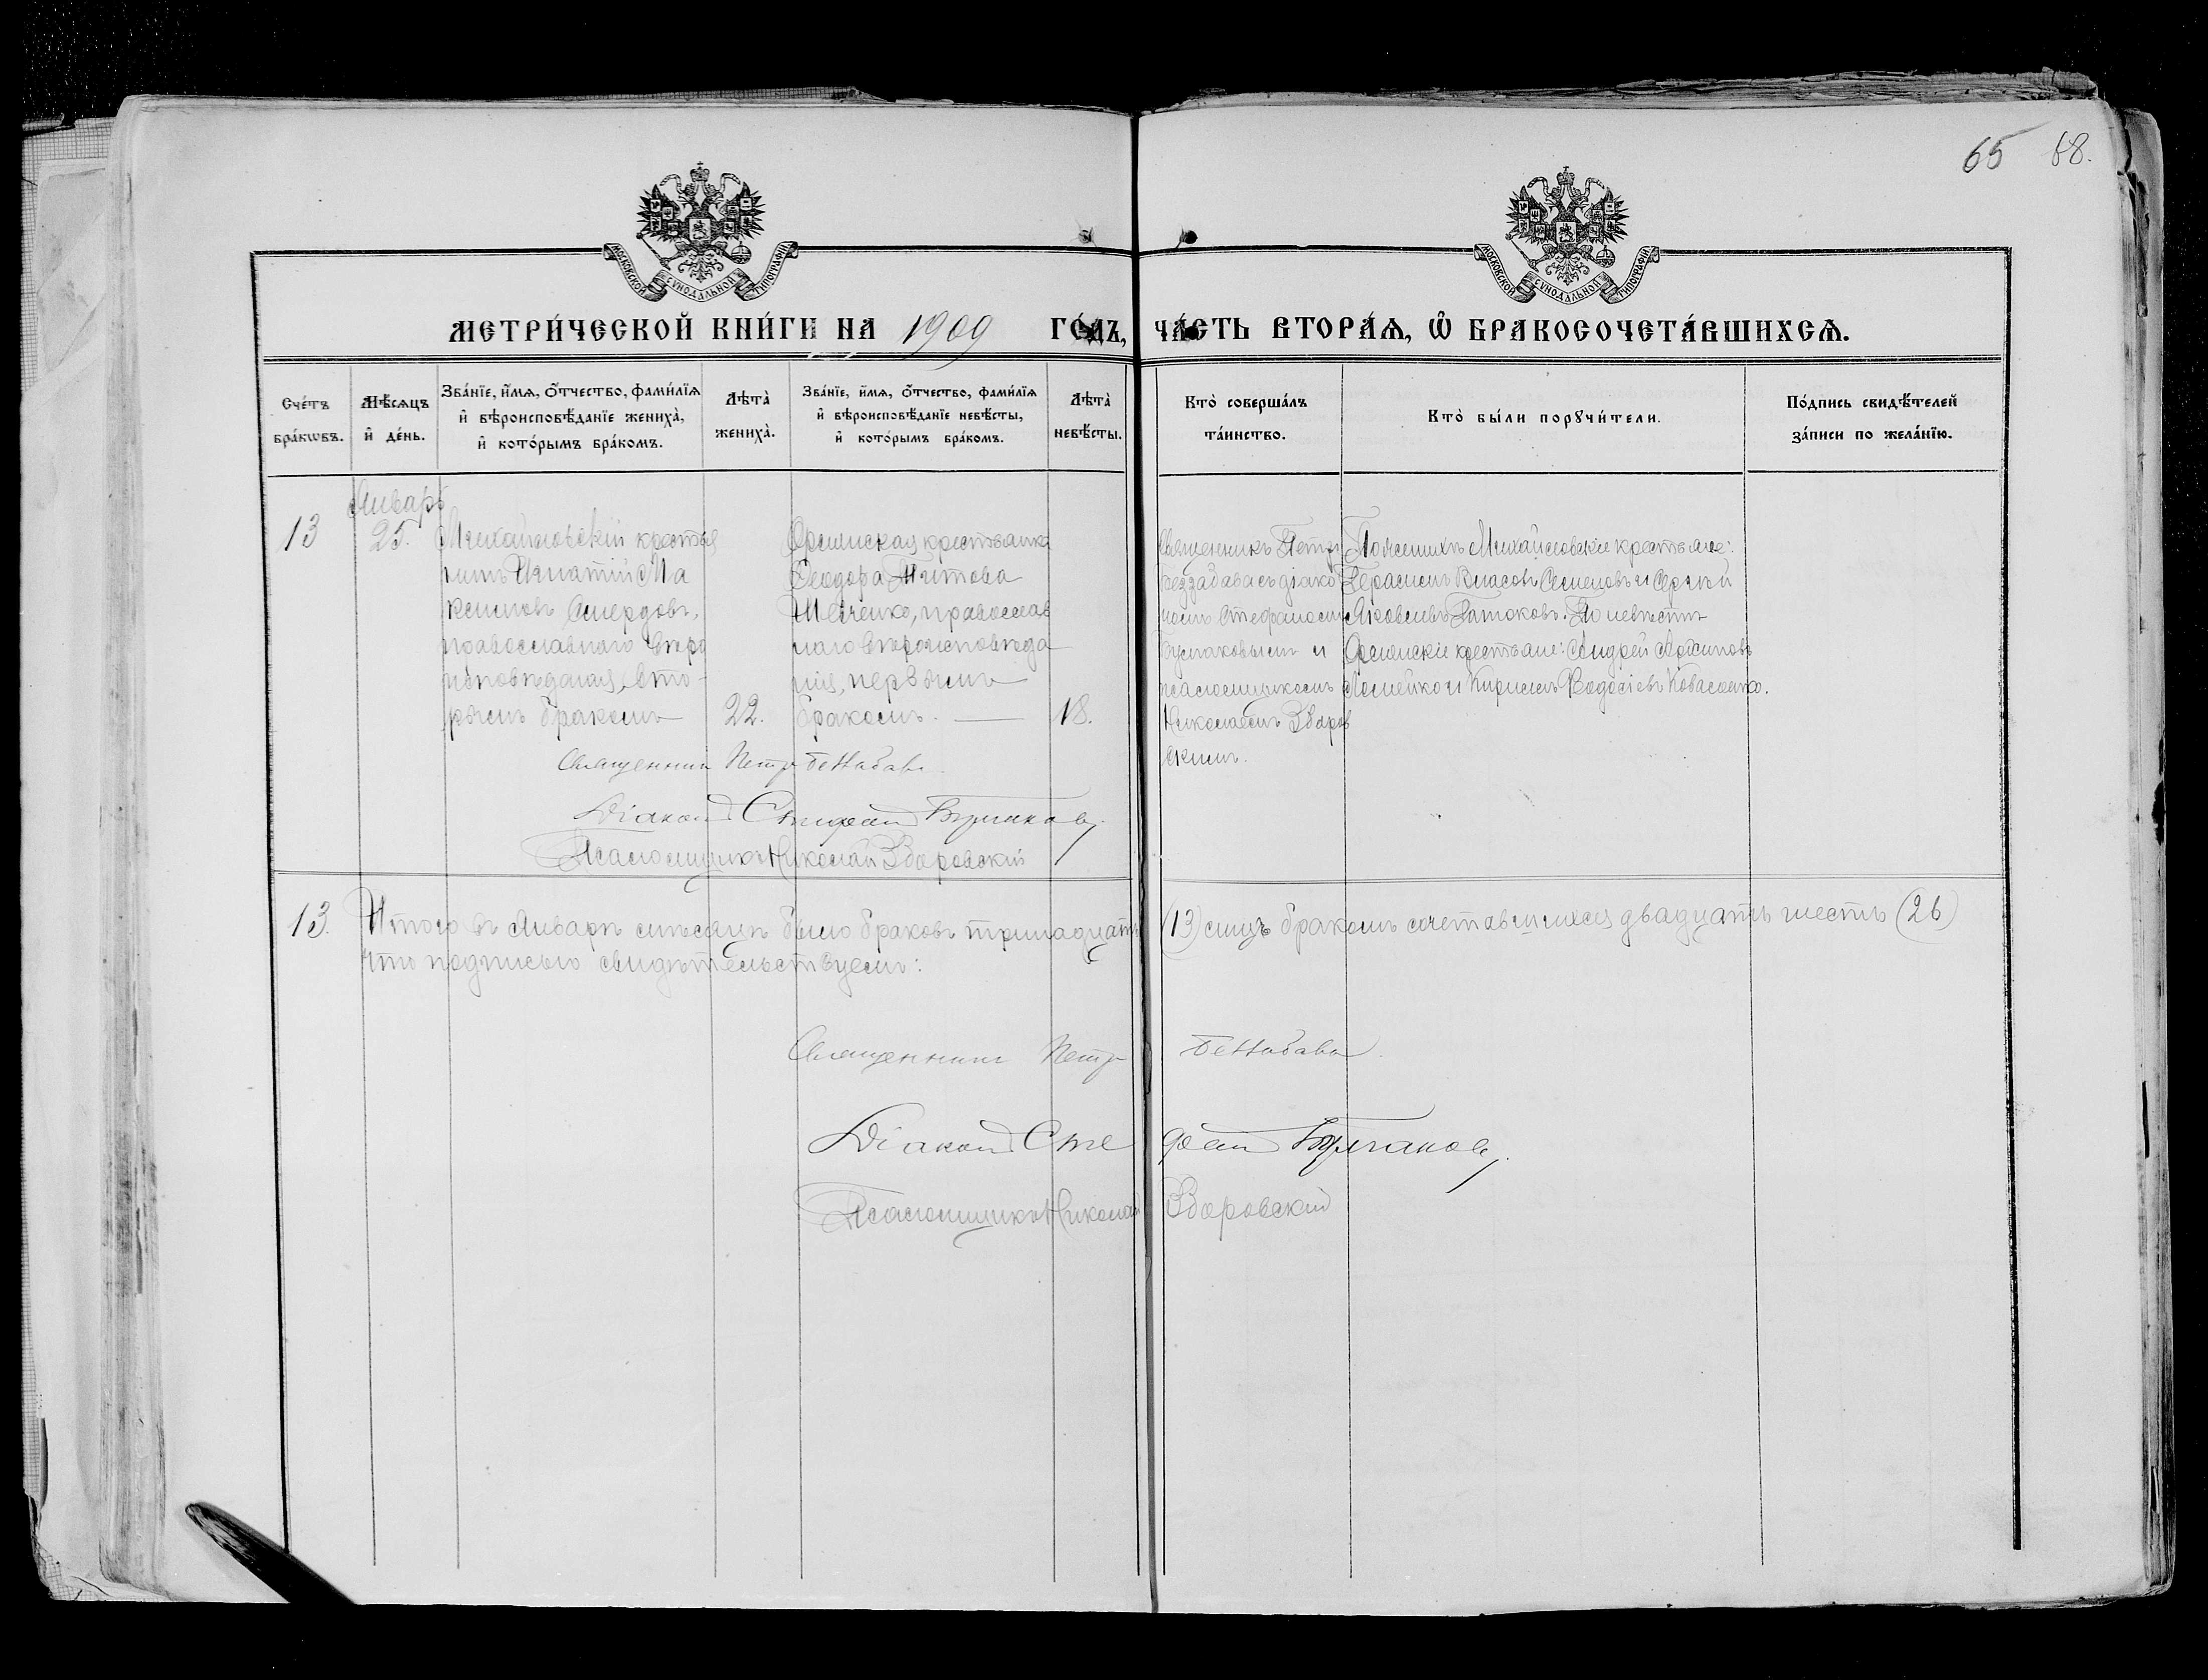 65 68.
МОСКОВСКОЙ СѴНОДАЛЬНОЙ ТИПОГРАФІИ
МОСКОВСКОЙ СѴНОДАЛЬНОЙ ТИПОГРАФІИ
МЕТРИ́ЧЕСКОЙ КНИ́ГИ НА 1909 ГО́ДЪ, ЧА́СТЬ ВТОРА́Ѧ, Ѽ БРАКОСОЧЕТА́ВШИХСѦ.
Сче́тъ
бра́кѡвъ.
Мѣ́сѧцъ
и҆ де́нь.
Зва́нїе, и҆́мѧ, ѻ҆́тчество, фами́лїѧ
и҆ вѣроисповѣ́данїе жениха̀,
и҆ кото́рымъ бра́комъ.
Лѣта̀
жениха̀.
Зва́нїе, и҆́мѧ, ѻ҆́тчество, фами́лїѧ
и҆ вѣроисповѣ́данїе невѣ́сты,
и҆ кото́рымъ бра́комъ.
Лѣта̀
невѣ́сты.
Кто̀ соверша́лъ
та́инство.
Кто̀ бы́ли порꙋчи́тели.
По́дпись свидѣ́телей
за́писи по жела́нїю.
13
Январь
25.
Михайловскій крестья
нинъ Игнатій Ма
ксимовъ Смердовъ,
православнаго вѣро
исповѣданія, вто-
рымъ бракомъ
22.
крестьянка
Ѳеодора Титова
православ
наго вѣроисповѣда
нія, первымъ
бракомъ. —
18.
Священникъ Петръ
Беззабава съ діако
номъ Стефаномъ
Булгаковымъ и
псаломщикомъ
Николаемъ Здоров
скимъ.
По женихѣ Михайловскіе крестьяне:
Герасимъ Власовъ Семеновъ и Сергѣй
Яковлевъ. По невѣстѣ
крестьяне: Андрей
и Кириллъ Ѳедосіевъ Коваленко.
Священникъ Петръ Беззабава
Діаконъ Стефанъ Булгаковъ.
Псаломщикъ Николай Здоровскій
13. Итого въ Январѣ мѣсяцѣ было браковъ тринадцать (13) симъ бракомъ сочетавшихся двадцать шесть (26)
что подписью свидѣтельствуемъ:
Священникъ Петръ Беззабава.
Діаконъ Стефанъ Булгаковъ.
Псаломщикъ Николай Здоровскій